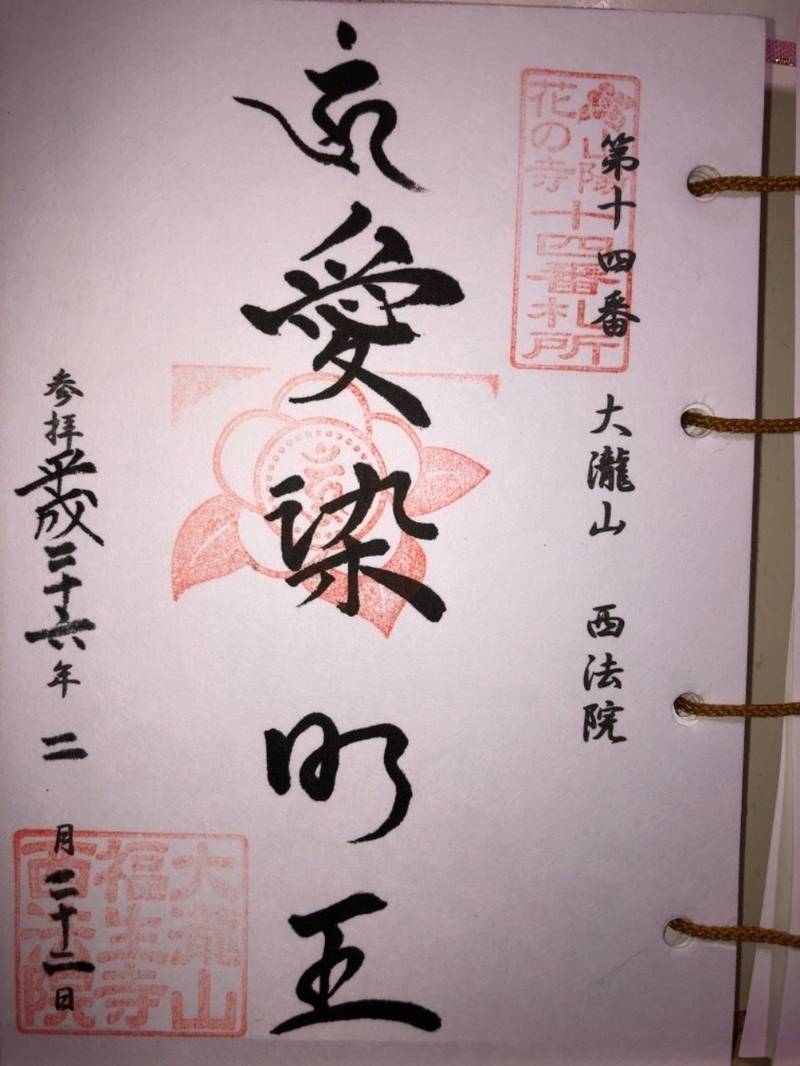 第十四番 大瀧山 西法院
山陽
花の寺
十四番札所
愛染明王
参拝 平成二十六年 二 月 二十二日
大瀧山
福生寺
西法院